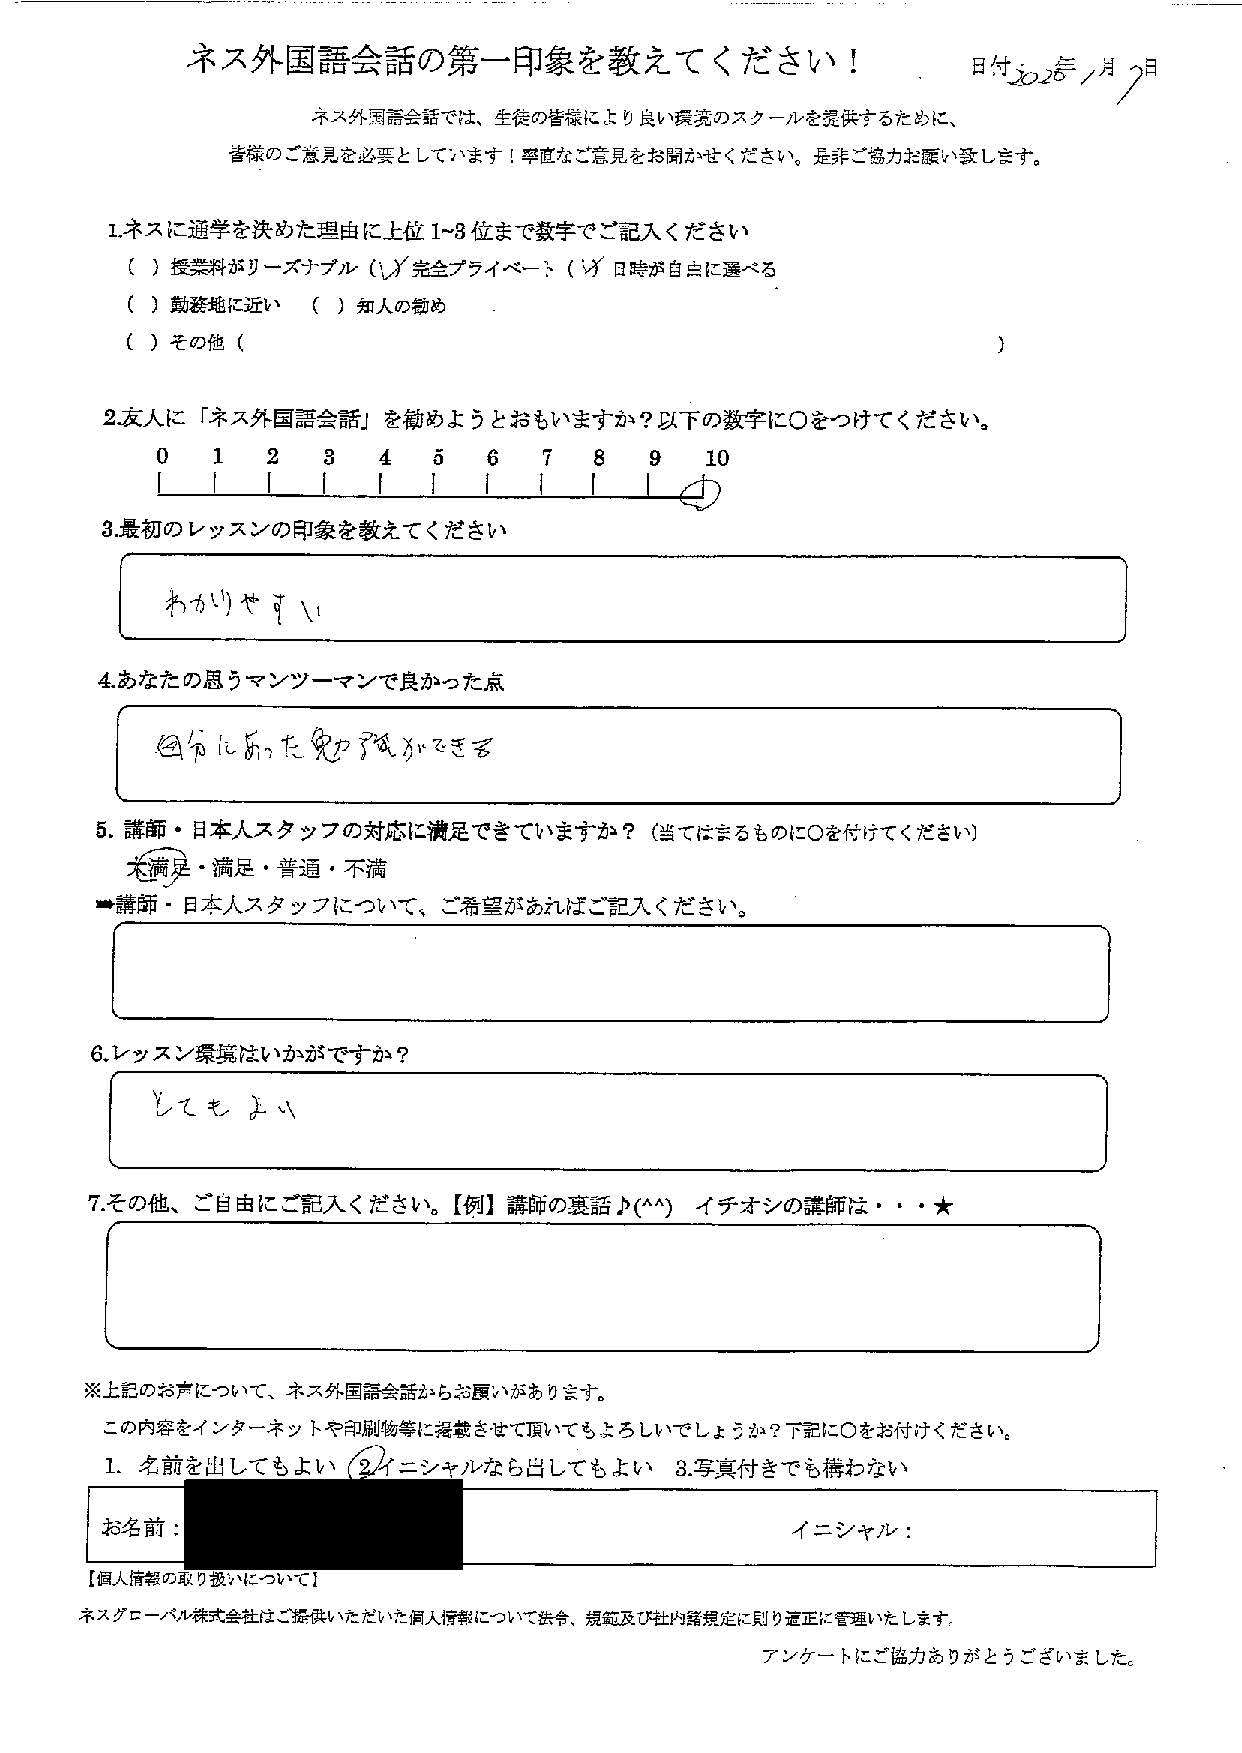 ネス外国語会話の第一印象を教えてください！ 日付 2026年 1月 7日
ネス外国語会話では、生徒の皆様により良い環境のスクールを提供するために、
皆様のご意見を必要としています！率直なご意見をお聞かせください。是非ご協力お願い致します。
1.ネスに通学を決めた理由に上位 1~3 位まで数字でご記入ください
（ ）授業料がリーズナブル（✓）完全プライベート（✓）日時が自由に選べる
（ ）勤務地に近い （ ）知人の勧め
（ ）その他（ ）
2.友人に「ネス外国語会話」を勧めようとおもいますか？以下の数字に〇をつけてください。
0 1 2 3 4 5 6 7 8 9 10
3.最初のレッスンの印象を教えてください
わかりやすい
4.あなたの思うマンツーマンで良かった点
自分にあった勉強ができる
5. 講師・日本人スタッフの対応に満足できていますか？（当てはまるものに〇を付けてください）
大満足・満足・普通・不満
➡講師・日本人スタッフについて、ご希望があればご記入ください。
6.レッスン環境はいかがですか？
とてもよい
7.その他、ご自由にご記入ください。【例】講師の裏話♪(^^) イチオシの講師は・・・★
※上記のお声について、ネス外国語会話からお願いがあります。
この内容をインターネットや印刷物等に掲載させて頂いてもよろしいでしょうか？下記に〇をお付けください。
1. 名前を出してもよい 2.イニシャルなら出してもよい 3.写真付きでも構わない
お名前： イニシャル：
【個人情報の取り扱いについて】
ネスグローバル株式会社はご提供いただいた個人情報について法令、規範及び社内諸規定に則り適正に管理いたします。
アンケートにご協力ありがとうございました。